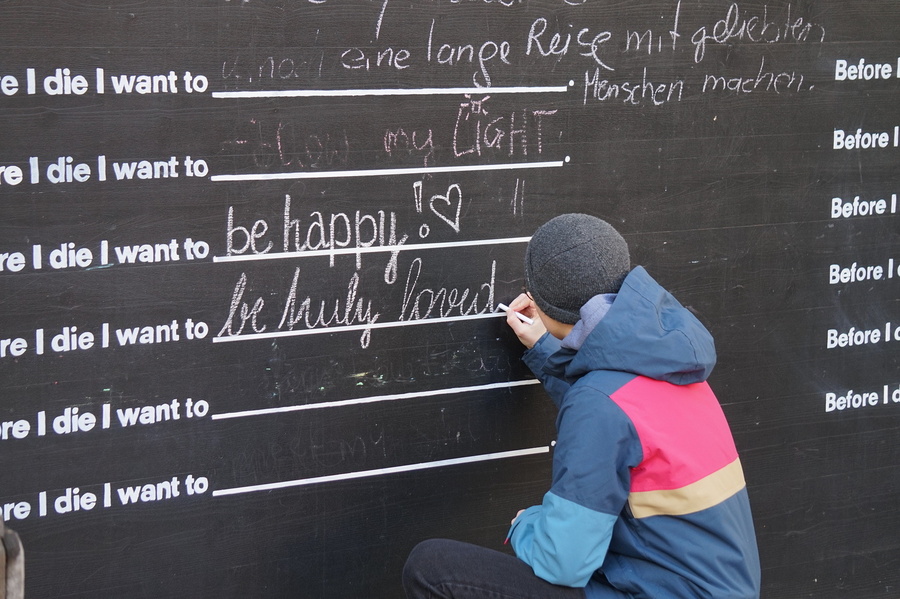 eine lange Reise mit geliebten
re I die I want to . Menschen machen.
Before I
re I die I want to my LIGHT .
Before I
re I die I want to be happy! ♡
Before I
re I die I want to be truly loved
Before I d
re I die I want to
Before I d
re I die I want to my .
Before I d